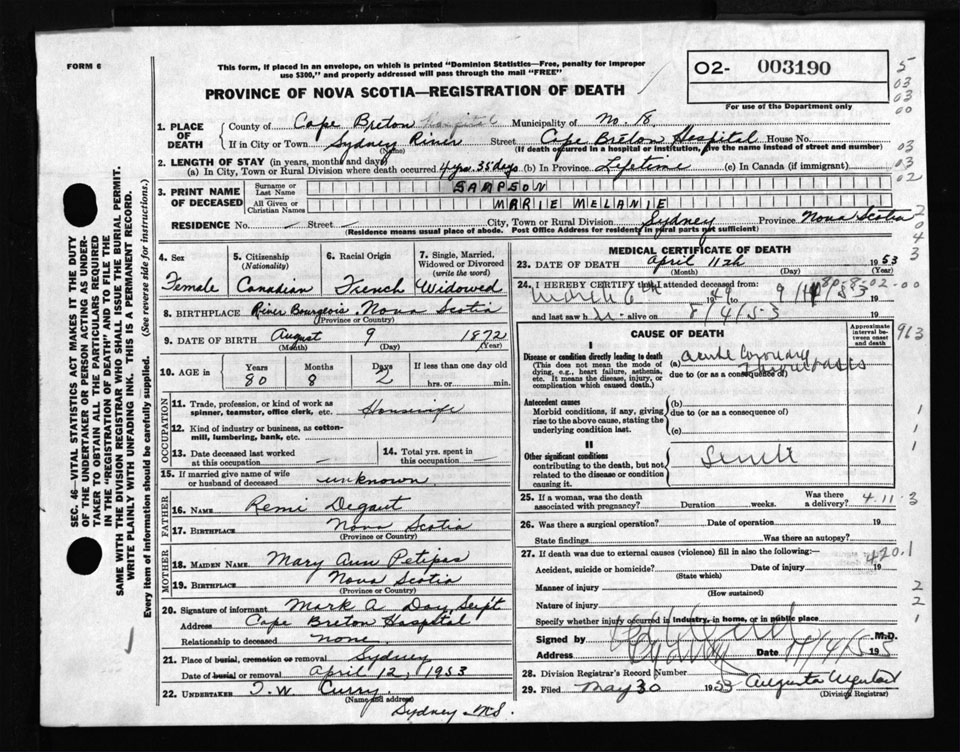 FORM 6
This form, if placed in an envelope, on which is printed "Dominion Statistics—Free, penalty for improper
use $300," and properly addressed will pass through the mail "FREE"
PROVINCE OF NOVA SCOTIA—REGISTRATION OF DEATH
O2- 003190
For use of the Department only
5
03
03
00
03
02
2
0
4
3
963
1
1
1
2
2
1
1. PLACE OF DEATH
County of Cape Breton Hospital Municipality of No. 18
If in City or Town Sydney River Street Cape Breton Hospital House No.
(Name) (If death occurred in a hospital or institution, give the name instead of street and number)
2. LENGTH OF STAY (in years, months and days)
(a) In City, Town or Rural Division where death occurred 4 yrs. 35 days (b) In Province Lifetime (c) In Canada (if immigrant)
3. PRINT NAME OF DECEASED
Surname or Last Name SAMPSON
All Given or Christian Names MARIE MELANIE
RESIDENCE No. — Street — City, Town or Rural Division Sydney Province Nova Scotia
(Residence means usual place of abode. Post Office Address for residents in rural parts not sufficient)
4. Sex
Female
5. Citizenship (Nationality)
Canadian
6. Racial Origin
French
7. Single, Married, Widowed or Divorced (write the word)
Widowed
8. BIRTHPLACE River Bourgeois, Nova Scotia
(Province or Country)
9. DATE OF BIRTH August 9 1872
(Month) (Day) (Year)
10. AGE in Years Months Days If less than one day old
80 8 2 hrs. or min.
OCCUPATION
11. Trade, profession, or kind of work as
spinner, teamster, office clerk, etc. Housewife
12. Kind of industry or business, as cotton-
mill, lumbering, bank, etc.
13. Date deceased last worked
at this occupation —
14. Total yrs. spent in
this occupation —
15. If married give name of wife
or husband of deceased unknown
FATHER
16. NAME Remi Degaut
17. BIRTHPLACE Nova Scotia
(Province or Country)
MOTHER
18. MAIDEN NAME Mary Ann Petipas
19. BIRTHPLACE Nova Scotia
(Province or Country)
20. Signature of informant Mark A Day, Sup't
Address Cape Breton Hospital
Relationship to deceased none
21. Place of burial, cremation or removal Sydney
Date of burial or removal April 12, 1953
22. UNDERTAKER T. W. Curry
(Name and address)
Sydney N.S.
MEDICAL CERTIFICATE OF DEATH
23. DATE OF DEATH April 11th 1953
(Month) (Day) (Year)
24. I HEREBY CERTIFY that I attended deceased from:
March 6th 1949 to
and last saw h alive on 8/4/53
02-00
CAUSE OF DEATH
Approximate interval between onset and death
I
Disease or condition directly leading to death
(This does not mean the mode of
dying, e.g., heart failure, asthenia,
etc. It means the disease, injury, or
complication which caused death.)
(a) Acute Coronary
Thrombosis
due to (or as a consequence of)
Antecedent causes
Morbid conditions, if any, giving
rise to the above cause, stating the
underlying condition last.
(b)
due to (or as a consequence of)
(c)
II
Other significant conditions
contributing to the death, but not
related to the disease or condition
causing it.
Senile
25. If a woman, was the death
associated with pregnancy? Duration weeks. Was there
a delivery?
4.11.3
26. Was there a surgical operation? Date of operation 19
State findings Was there an autopsy?
27. If death was due to external causes (violence) fill in also the following:—
420.1
Accident, suicide or homicide? Date of injury 19
(State which)
Manner of injury
(How sustained)
Nature of injury
Specify whether injury occurred in industry, in home, or in public place
Signed by M.D.
Address Date 195
28. Division Registrar's Record Number
29. Filed May 30 1953 Augusta
(Division Registrar)
SEC. 46—VITAL STATISTICS ACT MAKES IT THE DUTY
OF THE UNDERTAKER OR PERSON ACTING AS UNDER-
TAKER TO OBTAIN ALL THE PARTICULARS REQUIRED
IN THE "REGISTRATION OF DEATH" AND TO FILE THE
SAME WITH THE DIVISION REGISTRAR WHO SHALL ISSUE THE BURIAL PERMIT.
WRITE PLAINLY WITH UNFADING INK. THIS IS A PERMANENT RECORD.
Every item of information should be carefully supplied. (See reverse side for instructions.)